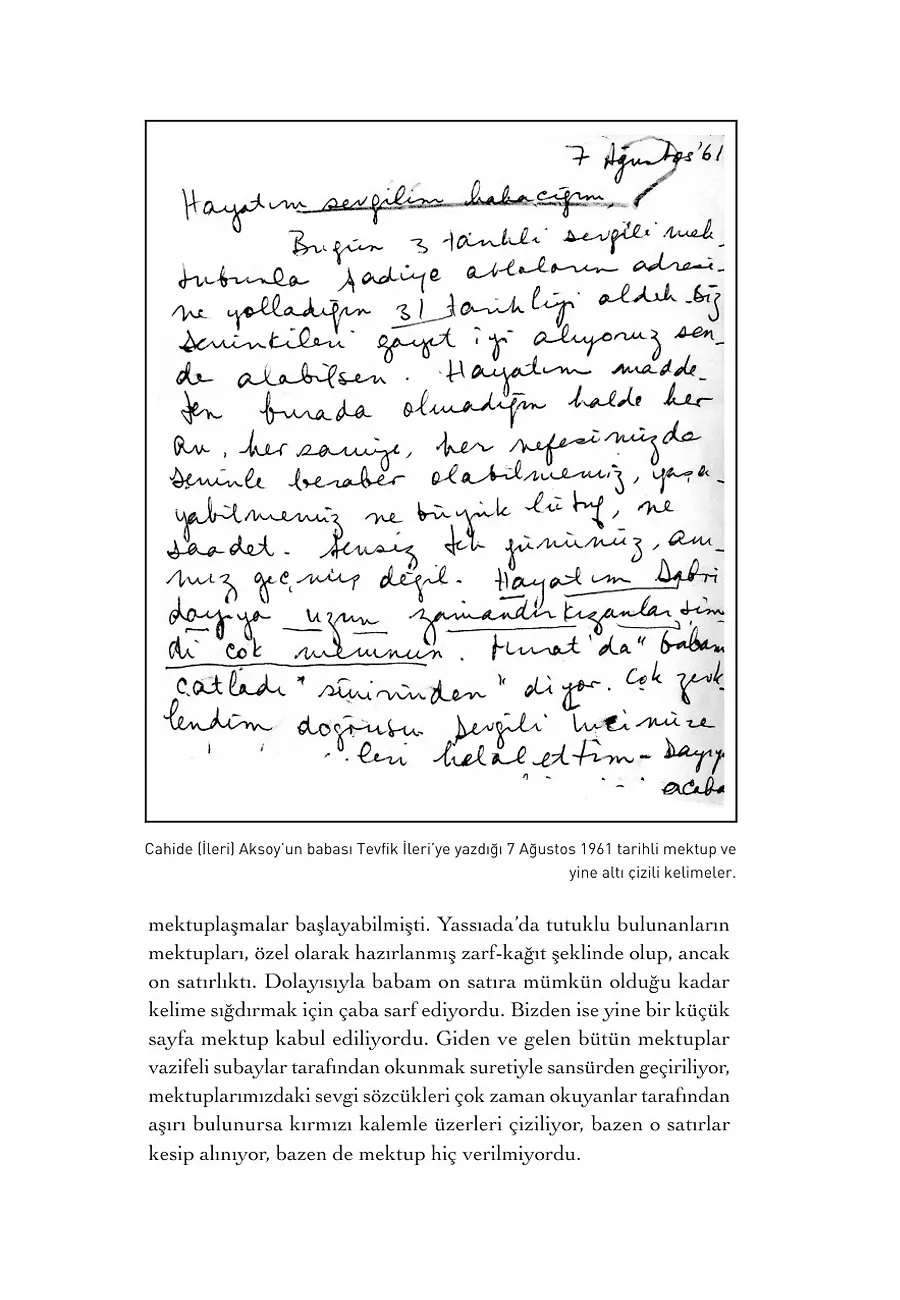 7 Ağustos '61
Hayatım sevgilim babacığım,
Bugün 3 tarihli sevgili mek-
tubunla Şadiye ablaların adresi-
ne yolladığın 31 tarihliği aldık. Biz
seninkileri gayet iyi alıyoruz sen-
de alabilsen. Hayatım madde-
ten burada olmadığın halde her
an, her saniye, her nefesimizde
seninle beraber olabilmemiz, yaşa-
yabilmemiz ne büyük lütuf, ne
saadet. Sensiz tek günümüz, anı-
mız geçmiş değil. Hayatım Sabri
dayıya uzun zamandır kızanlar şim
di çok memnun. Murat'da "babam
çatladı" sinirinden" diyor. Çok zevk
lendim doğrusu sevgili
leri helal ettim - Dayıy
acaba
Cahide (İleri) Aksoy'un babası Tevfik İleri'ye yazdığı 7 Ağustos 1961 tarihli mektup ve
yine altı çizili kelimeler.
mektuplaşmalar başlayabilmişti. Yassıada'da tutuklu bulunanların
mektupları, özel olarak hazırlanmış zarf-kağıt şeklinde olup, ancak
on satırlıktı. Dolayısıyla babam on satıra mümkün olduğu kadar
kelime sığdırmak için çaba sarf ediyordu. Bizden ise yine bir küçük
sayfa mektup kabul ediliyordu. Giden ve gelen bütün mektuplar
vazifeli subaylar tarafından okunmak suretiyle sansürden geçiriliyor,
mektuplarımızdaki sevgi sözcükleri çok zaman okuyanlar tarafından
aşırı bulunursa kırmızı kalemle üzerleri çiziliyor, bazen o satırlar
kesip alınıyor, bazen de mektup hiç verilmiyordu.